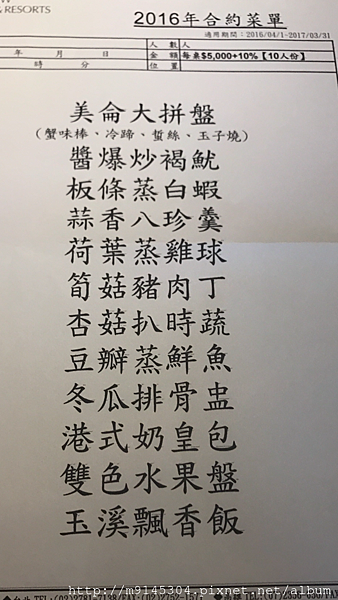 & RESORTS
2016年合約菜單
適用期間：2016/04/1~2017/03/31
年 月 日 人 數 人
時 分 金 額 每桌$5,000+10%【10人份】
位 置
美侖大拼盤
(蟹味棒、冷蹄、蜇絲、玉子燒)
醬爆炒褐魷
板條蒸白蝦
蒜香八珍羹
荷葉蒸雞球
筍菇豬肉丁
杏菇扒時蔬
豆瓣蒸鮮魚
冬瓜排骨盅
港式奶皇包
雙色水果盤
玉溪飄香飯
http://m9145304.pixnet.net/album